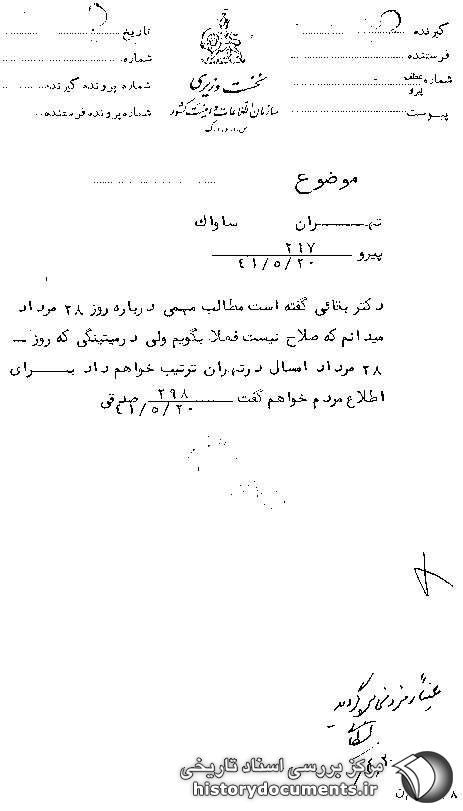 گیرنده
فرستنده
شماره عطف
پیرو
پیوست
نخست وزیری
سازمان اطلاعات و امنیت کشور
س.ا.و.ا.ک
تاریخ
شماره
شماره پرونده گیرنده
شماره پرونده فرستنده
موضوع
تهـــران ساواك
پیرو ۲۱۷
۴۱/۵/۲۰
دکتر بقائی گفته است مطالب مهمی درباره روز ۲۸ مرداد
میدانم که صلاح نیست فعلا بگویم ولی درمیتینگی که روز ــ
۲۸ مرداد امسال درتهران ترتیب خواهم داد بـــرای
اطلاع مردم خواهم گفت ۲۹۸ صدقی
۴۱/۵/۲۰
عیناً رمز
مرکز بررسی اسناد تاریخی
historydocuments.ir